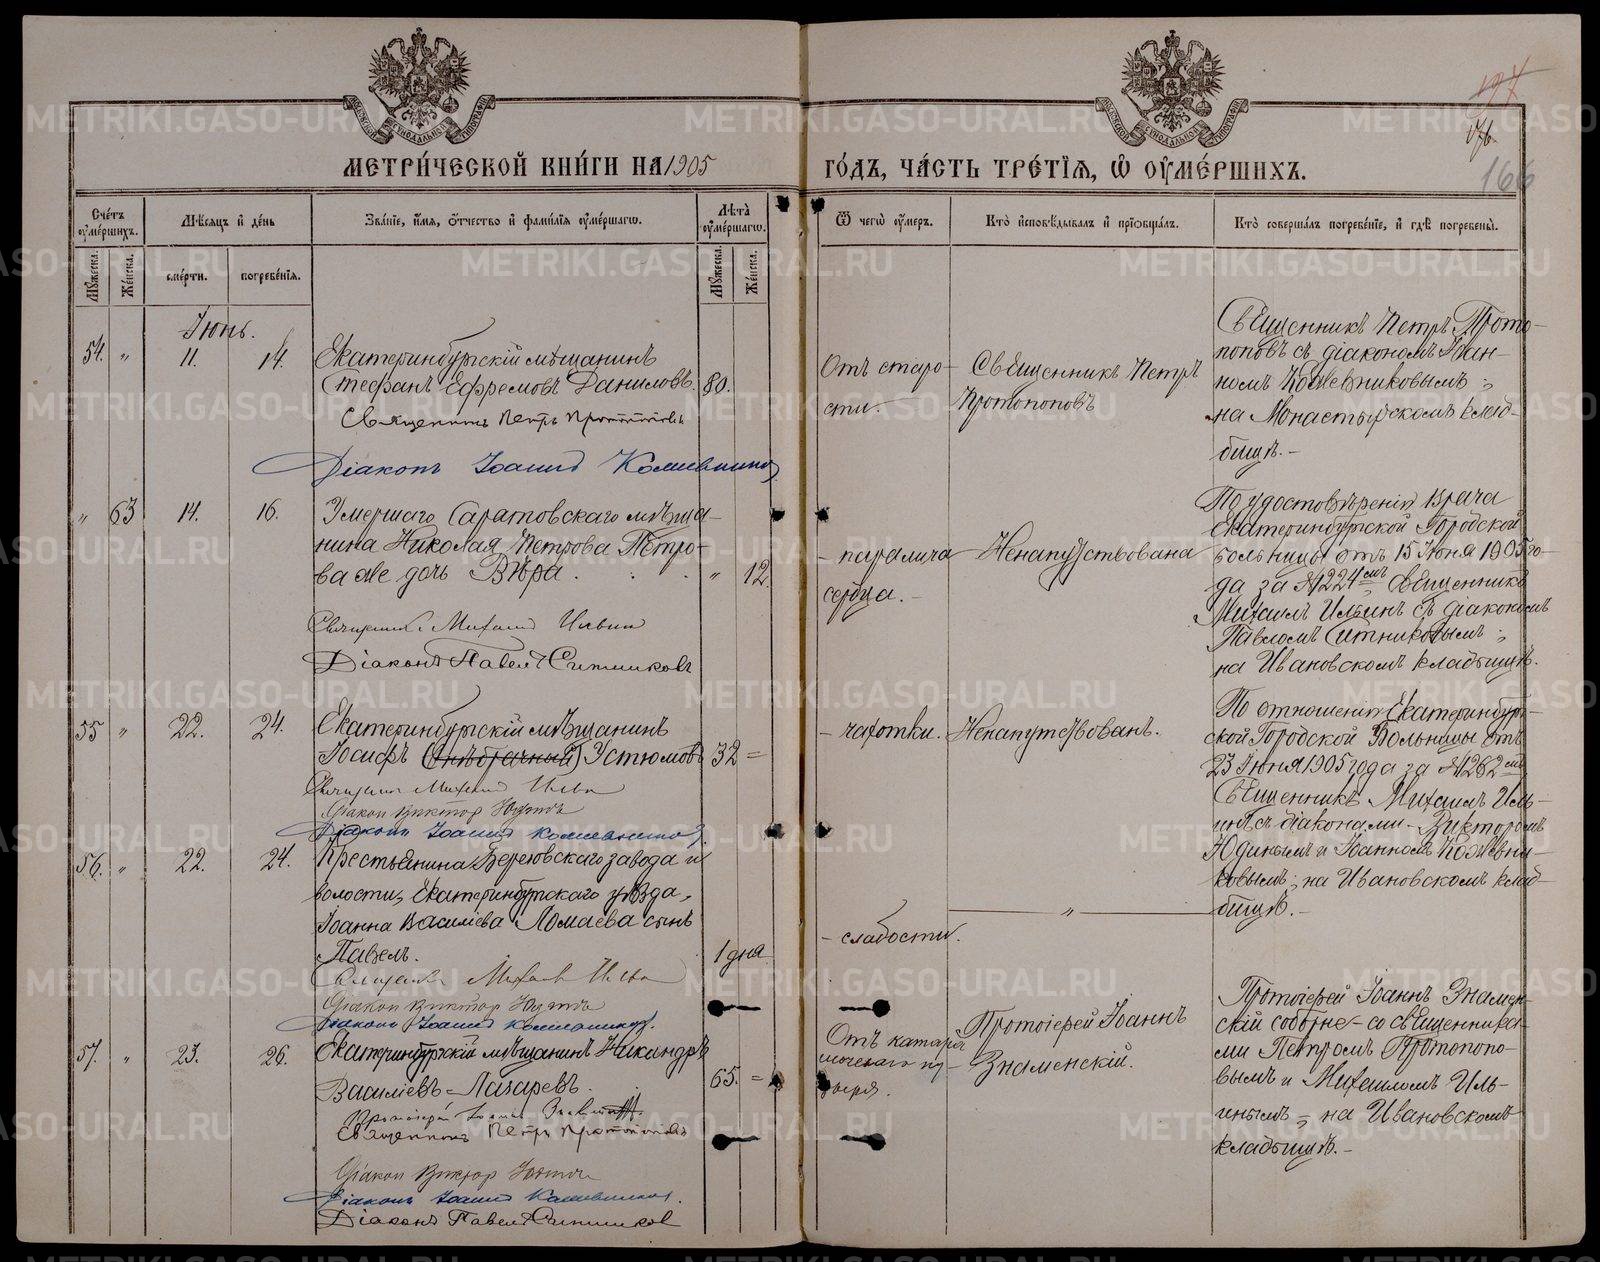 МЕТРИ́ЧЕСКОЙ КНИ́ГИ НА 1905
ГО́ДЪ, ЧА́СТЬ ТРЕ́ТІѦ, Ѽ ОУ҆МЕ́РШИХЪ.
176.
166
Сче́тъ оумершихъ.
Мѣсяцъ и де́нь
Зва́ніе, и́мя, о́тчество и фами́лія оуме́ршагѡ.
Лѣта̀ оуме́ршагѡ.
Ѿ чегѡ̀ оу́меръ.
Кто̀ исповѣ́дывалъ и пріѡбща́лъ.
Кто̀ соверша́лъ погребе́ніе, и гдѣ̀ погребены̀.
Мꙋжеска.
Же́нска.
сме́рти.
погребе́нїя.
Мꙋжеска.
Же́нска.
Іюнь.
54. " 11. 14.
Екатеринбургскій мѣщанинъ
Стефанъ Ефремовъ Даниловъ. 80.
Священникъ Петръ Протопоповъ
Діаконъ Іоаннъ Кожевников
Отъ старо-
сти.
Священникъ Петръ
Протопоповъ
Священникъ Петръ Прото-
поповъ съ діакономъ Іоан-
номъ Кожевниковымъ;
на Монастырскомъ клад-
бищѣ.-
" 63 14. 16.
Умершаго Саратовскаго мѣща-
нина Николая Петрова Петро-
ва же дочь Вѣра. " 12.
Священникъ Михаилъ Ильинъ
Діаконъ Павелъ Ситниковъ
- паралича
сердца.-
Ненапутствована
По удостовѣренію врача
Екатеринбургской Городской
больницы отъ 15 Іюня 1905 го-
да за № 1224мъ, Священникъ
Михаилъ Ильинъ съ діакономъ
Павломъ Ситниковымъ;
на Ивановскомъ кладбищѣ.
55 " 22. 24.
Екатеринбургскій мѣщанинъ
Іосифъ (внѣбрачный) Устюмовъ 32 =
Священникъ Михаилъ Ильинъ
Діаконъ Викторъ Юдинъ
Діаконъ Іоаннъ Кожевников.
- чахотки.
Ненапутствованъ.
По отношенію Екатеринбург-
ской Городской Больницы отъ
23 Іюня 1905 года за № 1262мъ
Священникъ Михаилъ Иль-
инъ съ діаконами - Викторомъ
Юдинымъ и Іоанномъ Кожевни-
ковымъ; на Ивановскомъ клад-
бищѣ.-
56. " 22. 24.
Крестьянина Березовскаго завода и
волости, Екатеринбургскаго уѣзда,
Іоанна Василіева Ломаева сынъ
Павелъ. 1 дня
Священникъ Михаилъ Ильинъ
Діаконъ Викторъ Юдинъ
Діаконъ Іоаннъ Кожевников.
- слабости.
"
57. " 23. 26.
Екатеринбургскій мѣщанинъ Никандръ
Василіевъ Лазаревъ. 65. =
Протоіерей Іоаннъ Знаменскій
Священникъ Петръ Протопоповъ
Діаконъ Викторъ Юдинъ
Діаконъ Іоаннъ Кожевников.
Діаконъ Павелъ Ситников
Отъ
пу-
зыря.
Протоіерей Іоаннъ
Знаменскій.
Протоіерей Іоаннъ Знамен-
скій соборне - со священника-
ми Петромъ Протопопо-
вымъ и Михаиломъ Иль-
инымъ; на Ивановскомъ
кладбищѣ.-
METRIKI.GASO-URAL.RU